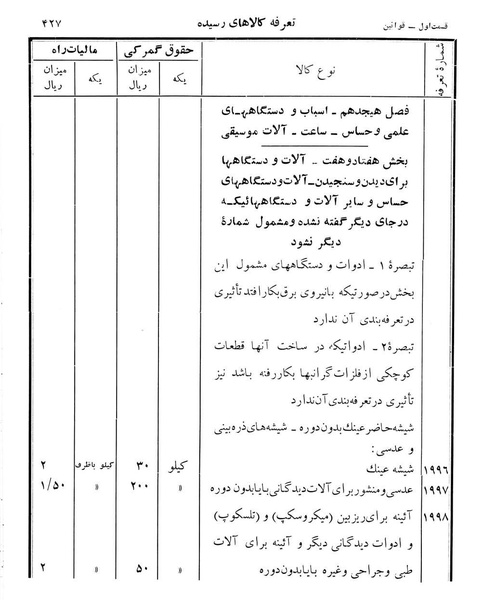 قسمت اول ــ قوانین
تعرفه کالاهای رسیده
۴۲۷
شمارهٔ تعرفه
نوع کالا
حقوق گمرکی
مالیات راه
یکه
میزان ریال
یکه
میزان ریال
فصل هیجدهم ــ اسباب و دستگاههای
علمی وحساس ــ ساعت ــ آلات موسیقی
بخش هفتادوهفت ــ آلات و دستگاهها
برای دیدن و سنجیدن ــ آلات و دستگاههای
حساس و سایر آلات و دستگاههائیکه
درجای دیگر گفته نشده و مشمول شمارهٔ
دیگر نشود
تبصرهٔ ۱ ــ ادوات و دستگاههای مشمول این
بخش درصورتیکه با نیروی برق بکار افتد تأثیری
در تعرفه بندی آن ندارد
تبصرهٔ ۲ ــ ادواتیکه در ساخت آنها قطعات
کوچکی از فلزات گرانبها بکار رفته باشد نیز
تأثیری در تعرفه بندی آن ندارد
شیشه حاضر عینک بدون دوره ــ شیشه های ذره بینی
و عدسی:
۱۹۹۶ شیشه عینک کیلو ۳۰ کیلو باظرف ۲
۱۹۹۷ عدسی و منشور برای آلات دیدگانی با یا بدون دوره » ۲۰۰ » ۱/۵۰
۱۹۹۸ آئینه برای ریزبین (میکروسکپ) و (تلسکوپ)
و ادوات دیدگانی دیگر و آئینه برای آلات
طبی و جراحی و غیره با یا بدون دوره » ۵۰ » ۲